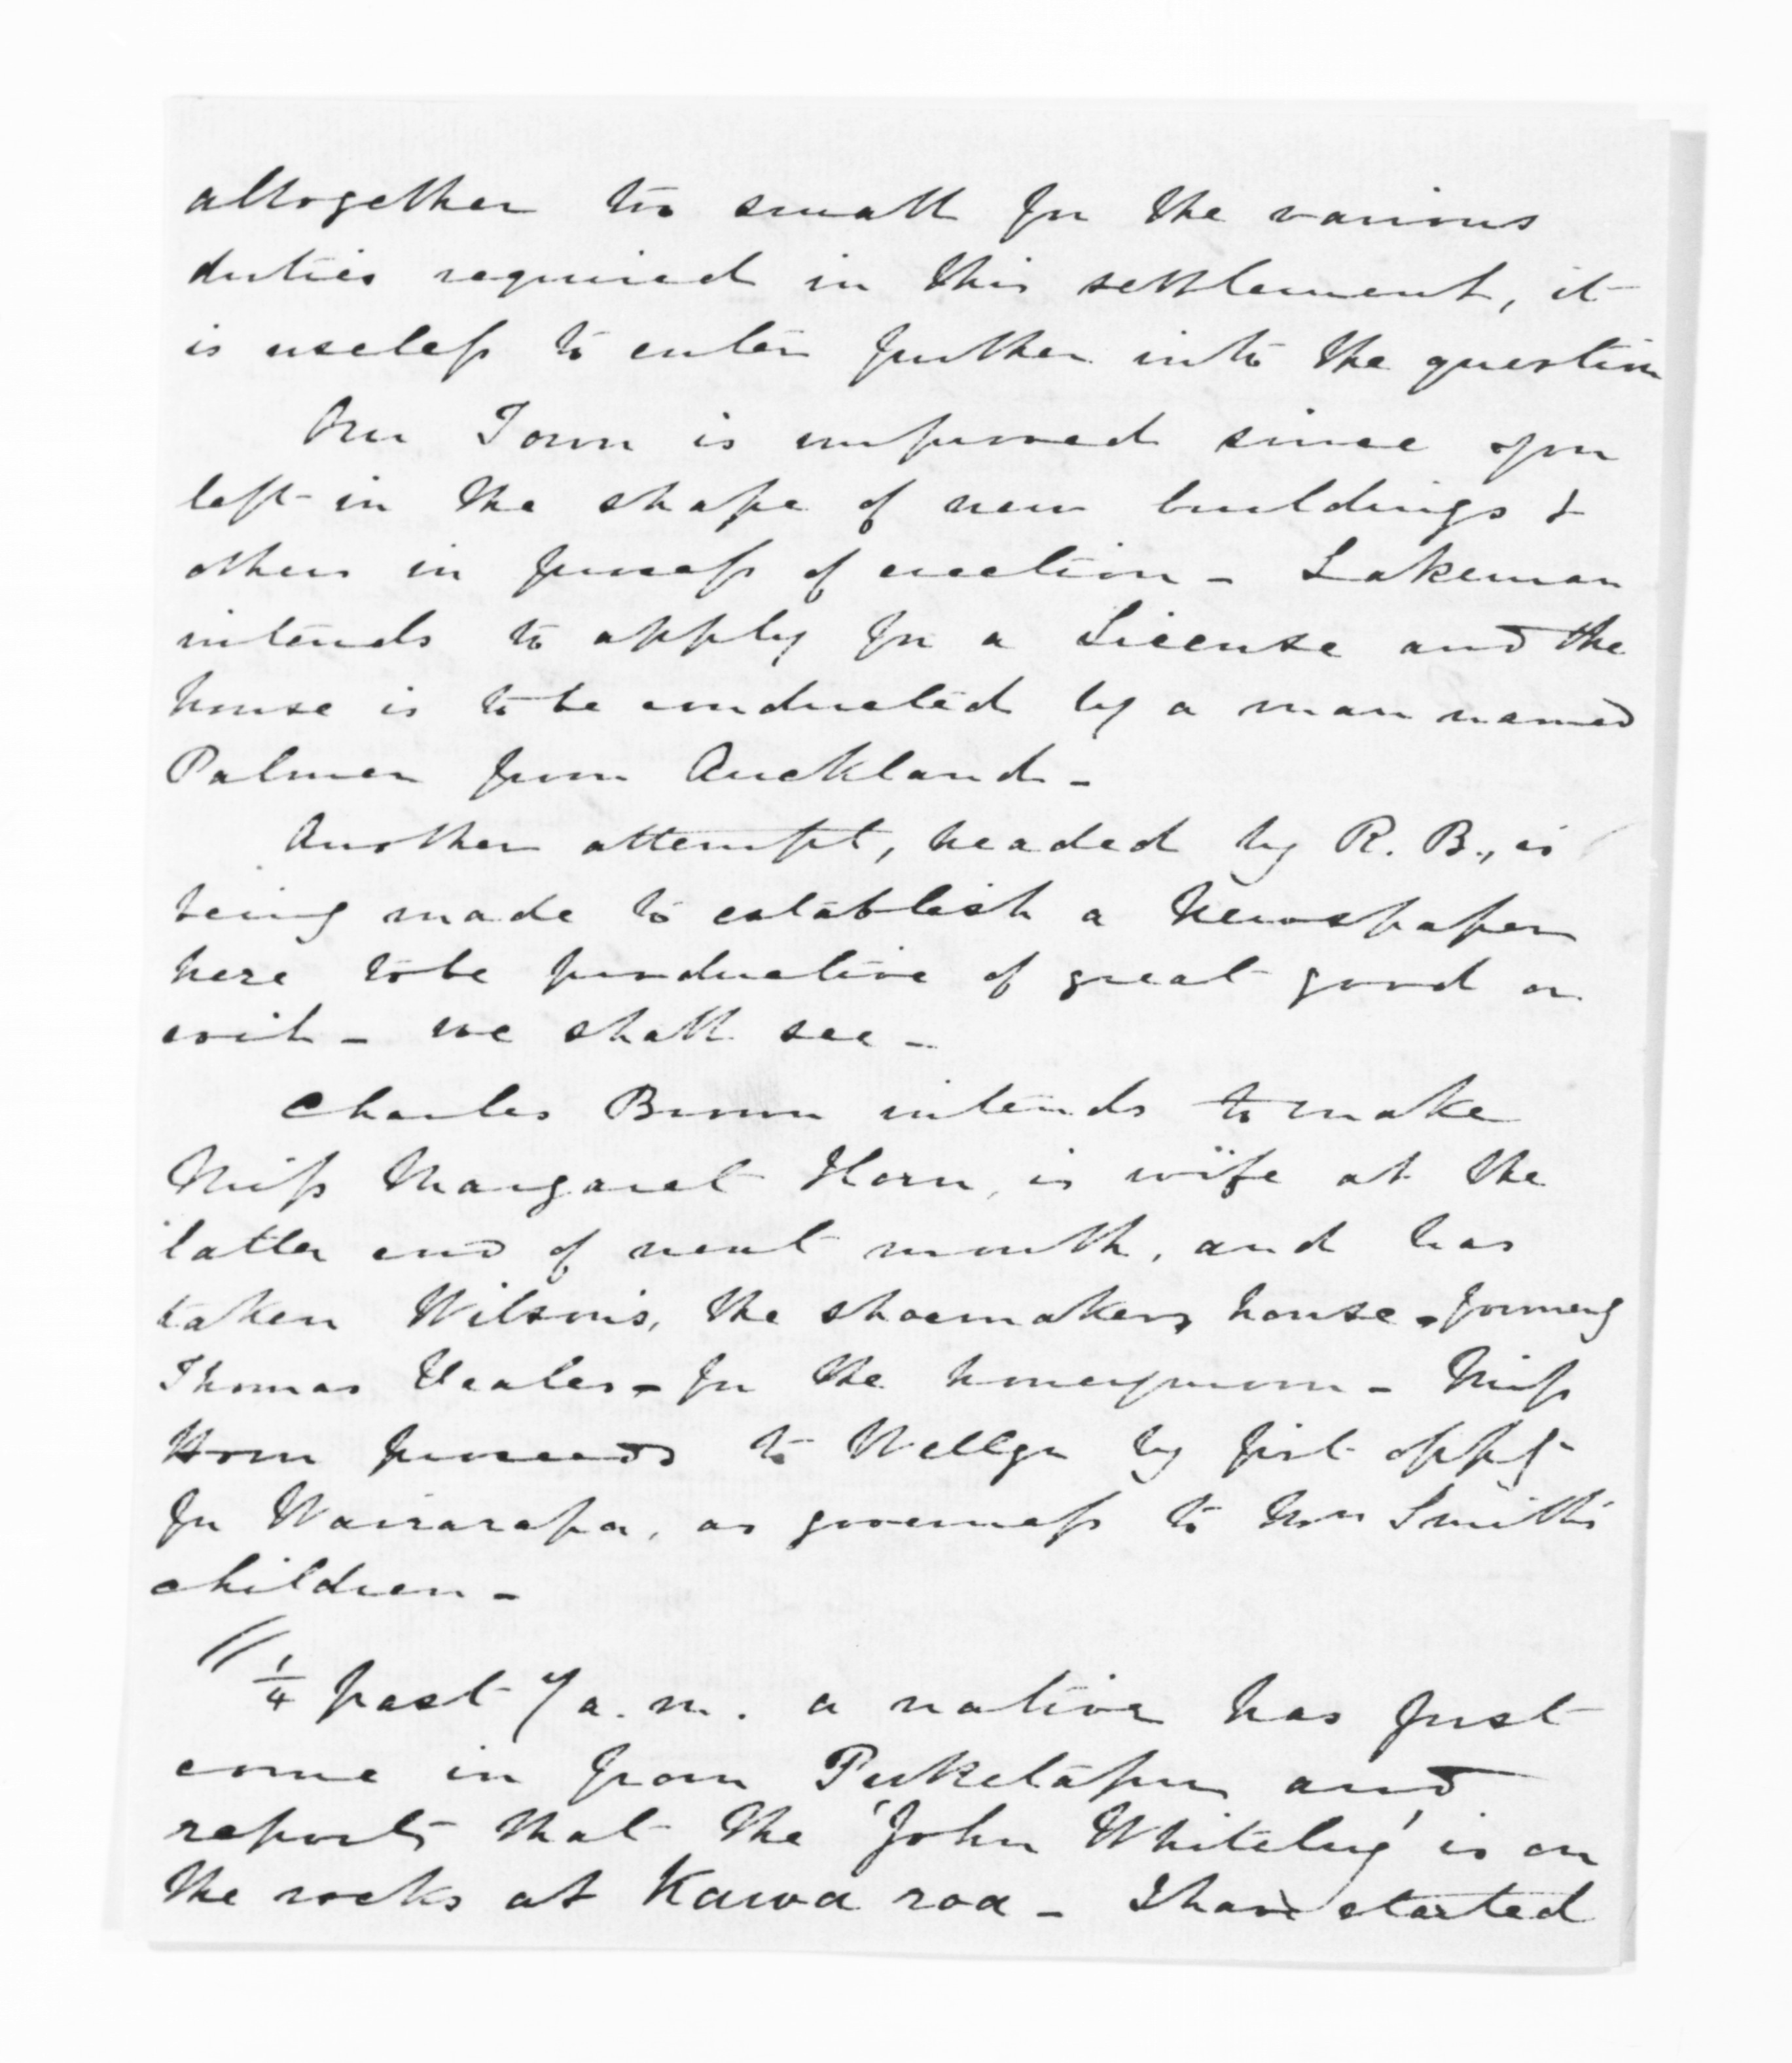 altogether too small for the various
duties required in this settlement, it
is useless to enter further into the question
Our Town is improved since you
left in the shape of new buildings &
others in process of erection - Lakeman
intends to apply for a License and the
house is to be conducted by a man named
Palmer from Auckland -
Another attempt, headed by R. B., is
being made to establish a Newspaper
here to be productive of great good or
evil - we shall see -
Charles Brown intends to make
Miss Margaret Horn, is wife at the
latter end of next month, and has
taken Wilson's, the shoemakers, house, formerly
Thomas Veales - for the honeymoon - Miss
Horn proceeds to Wellgn by first oppy
for Wairarapa, as governess to Mrs Smith's
children -
1/4 past 7 a.m. a native has just
come in from Puketapu and
reports that the 'John Whiteley' is on
the rocks at Kawa roa - I have started